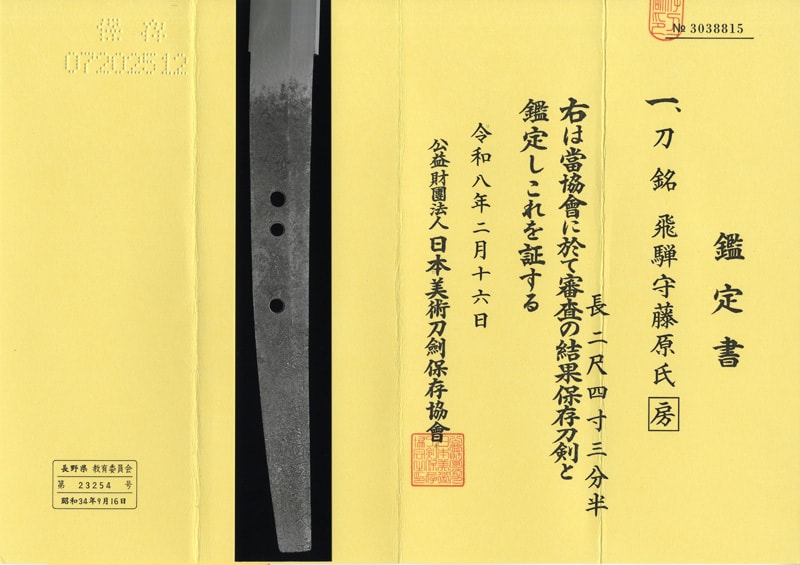 № 3038815
鑑定書
一、刀 銘 飛騨守藤原氏房
長二尺四寸三分半
右は當協會に於て審査の結果保存刀剣と
鑑定しこれを証する
令和八年二月十六日
公益財團法人 日本美術刀劍保存協會
保存
07202512
長野県 教育委員会
第 23254 号
昭和34年9月16日